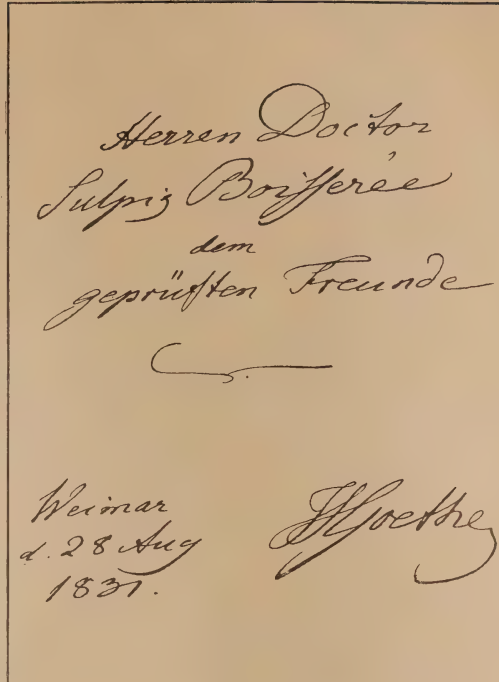 Herren Doctor
Sulpiz Boisserée
dem
geprüften Freunde
Weimar
d. 28 Aug
1831.
JWGoethe